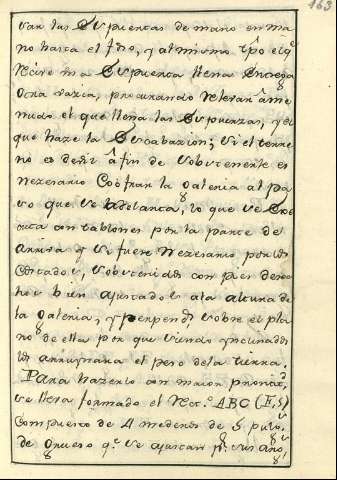 163
van las Espuertas de mano en ma
no hasta el fdo, y al mismo tpo el q.e
Recive una Espuerta llena Entrega
Otra vazia, procurando Relevar â me
nudo el que llena las Espuerzas, y el
que haze la Escabazion; Si el terre
no es devil â fin de Sobstenerle es
Nezesario Cofrar la Galeria al pa
so que se adelanta, lo que se Exe
cuta con tablones por la parte de
arriva y si fuere Nezesario por los
Costados, Sobstenidos con pies derec
hos bien ajustados a la altura de
la Galeria, y perpend.s sobre el pla
no de ella por que siendo ynclinados
los arruynara el peso de la tierra.
Para hazerlo con maior prontit.d
se lleva formado el Rec.o ABC (F, 5)
Compuesto de 4 maderos de 5 pulg.s
de Grueso q.e se ajustan p.r sus ang.s